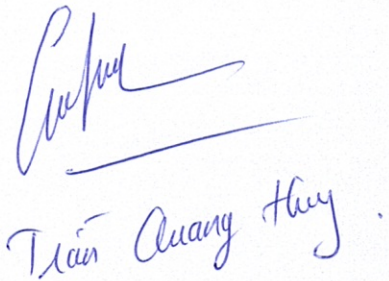 Trần Quang Huy.